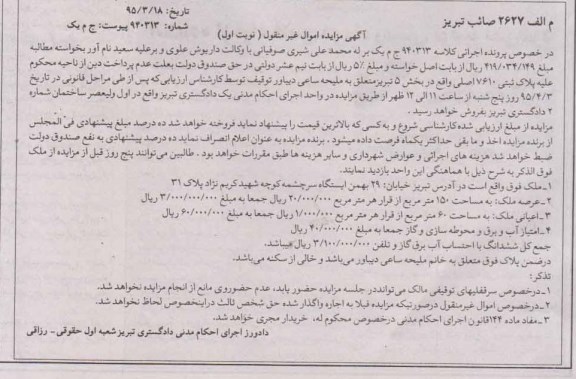 م الف ۲۶۲۷ صائب تبریز
تاریخ: ۹۵/۳/۱۸
شماره: ۹۴۰۳۱۳ پیوست: ج م یک
آگهی مزایده اموال غیر منقول (نوبت اول)
در خصوص پرونده اجرائی کلاسه ۹۴۰۳۱۳ ج م یک بر له محمد علی شیری صوفیانی با وکالت داریوش علوی و برعلیه سعید نام آور بخواسته مطالبه
مبلغ ۴۱۹/۰۳۴/۱۴۹ ریال از بابت اصل خواسته و مبلغ ۵٪ ریال از بابت نیم عشر دولتی در حق صندوق دولت بعلت عدم پرداخت دین از ناحیه محکوم
علیه پلاک ثبتی ۷۶۱۰ اصلی واقع در بخش ۵ تبریز متعلق به ملیحه ساعی دیباور توقیف توسط کارشناس ارزیابی که پس از طی مراحل قانونی در تاریخ
۹۵/۴/۳ روز پنج شنبه از ساعت ۱۱ الی ۱۲ ظهر از طریق مزایده در واحد اجرای احکام مدنی یک دادگستری تبریز واقع در اول ولیعصر ساختمان شماره
۲ دادگستری تبریز بفروش خواهد رسید .
مزایده از مبلغ ارزیابی شده کارشناسی شروع و به کسی که بالاترین قیمت را پیشنهاد نماید فروخته خواهد شد ده درصد مبلغ پیشنهادی فی المجلس
از برنده مزایده اخذ و ما بقی حداکثر یکماه فرصت داده میشود . برنده مزایده به عنوان اعلام انصراف نماید ده درصد پیشنهادی به نفع صندوق دولت
ضبط خواهد شد هزینه های اجرائی و عوارض شهرداری و سایر هزینه ها طبق مقررات خواهد بود . طالبین می‌توانند پنج روز قبل از مزایده از ملک
فوق الذکر به شرح ذیل با هماهنگی این واحد بازدید نمایند.
۱-ملک فوق واقع است در آدرس تبریز خیابان: ۲۹ بهمن ایستگاه سرچشمه کوچه شهید کریم نژاد پلاک ۳۱
۲-عرصه ملک: به مساحت ۱۵۰ متر مربع از قرار هر متر مربع ۲۰/۰۰۰/۰۰۰ ریال جمعا به مبلغ ۳/۰۰۰/۰۰۰/۰۰۰ ریال
۳-اعیانی ملک: به مساحت ۶۰ متر مربع از قرار هر متر مربع ۱/۰۰۰/۰۰۰ ریال جمعا به مبلغ ۶۰/۰۰۰/۰۰۰ ریال
۴-امتیاز آب و برق و محوطه سازی و گاز جمعا به مبلغ ۴۰/۰۰۰/۰۰۰ ریال
جمع کل ششدانگ با احتساب آب برق گاز و تلفن ۳/۱۰۰/۰۰۰/۰۰۰ ریال میباشد.
درضمن پلاک فوق متعلق به خانم ملیحه ساعی دیباور می‌باشد و خالی از سکنه می‌باشد.
تذکر:
۱-درخصوص سرقفلیهای توقیفی مالک می‌تواند در جلسه مزایده حضور یابد، عدم حضوروی مانع از انجام مزایده نخواهد شد.
۲-درخصوص اموال غیر منقول درصورتیکه مزایده قبلا به اجاره واگذار شده حق شخص ثالث دراینخصوص لحاظ نخواهد شد.
۳-مفاد ماده ۱۴۴ قانون اجرای احکام مدنی درخصوص محکوم له، خریدار مجری خواهد شد.
دادورز اجرای احکام مدنی دادگستری تبریز شعبه اول حقوقی - رزاقی